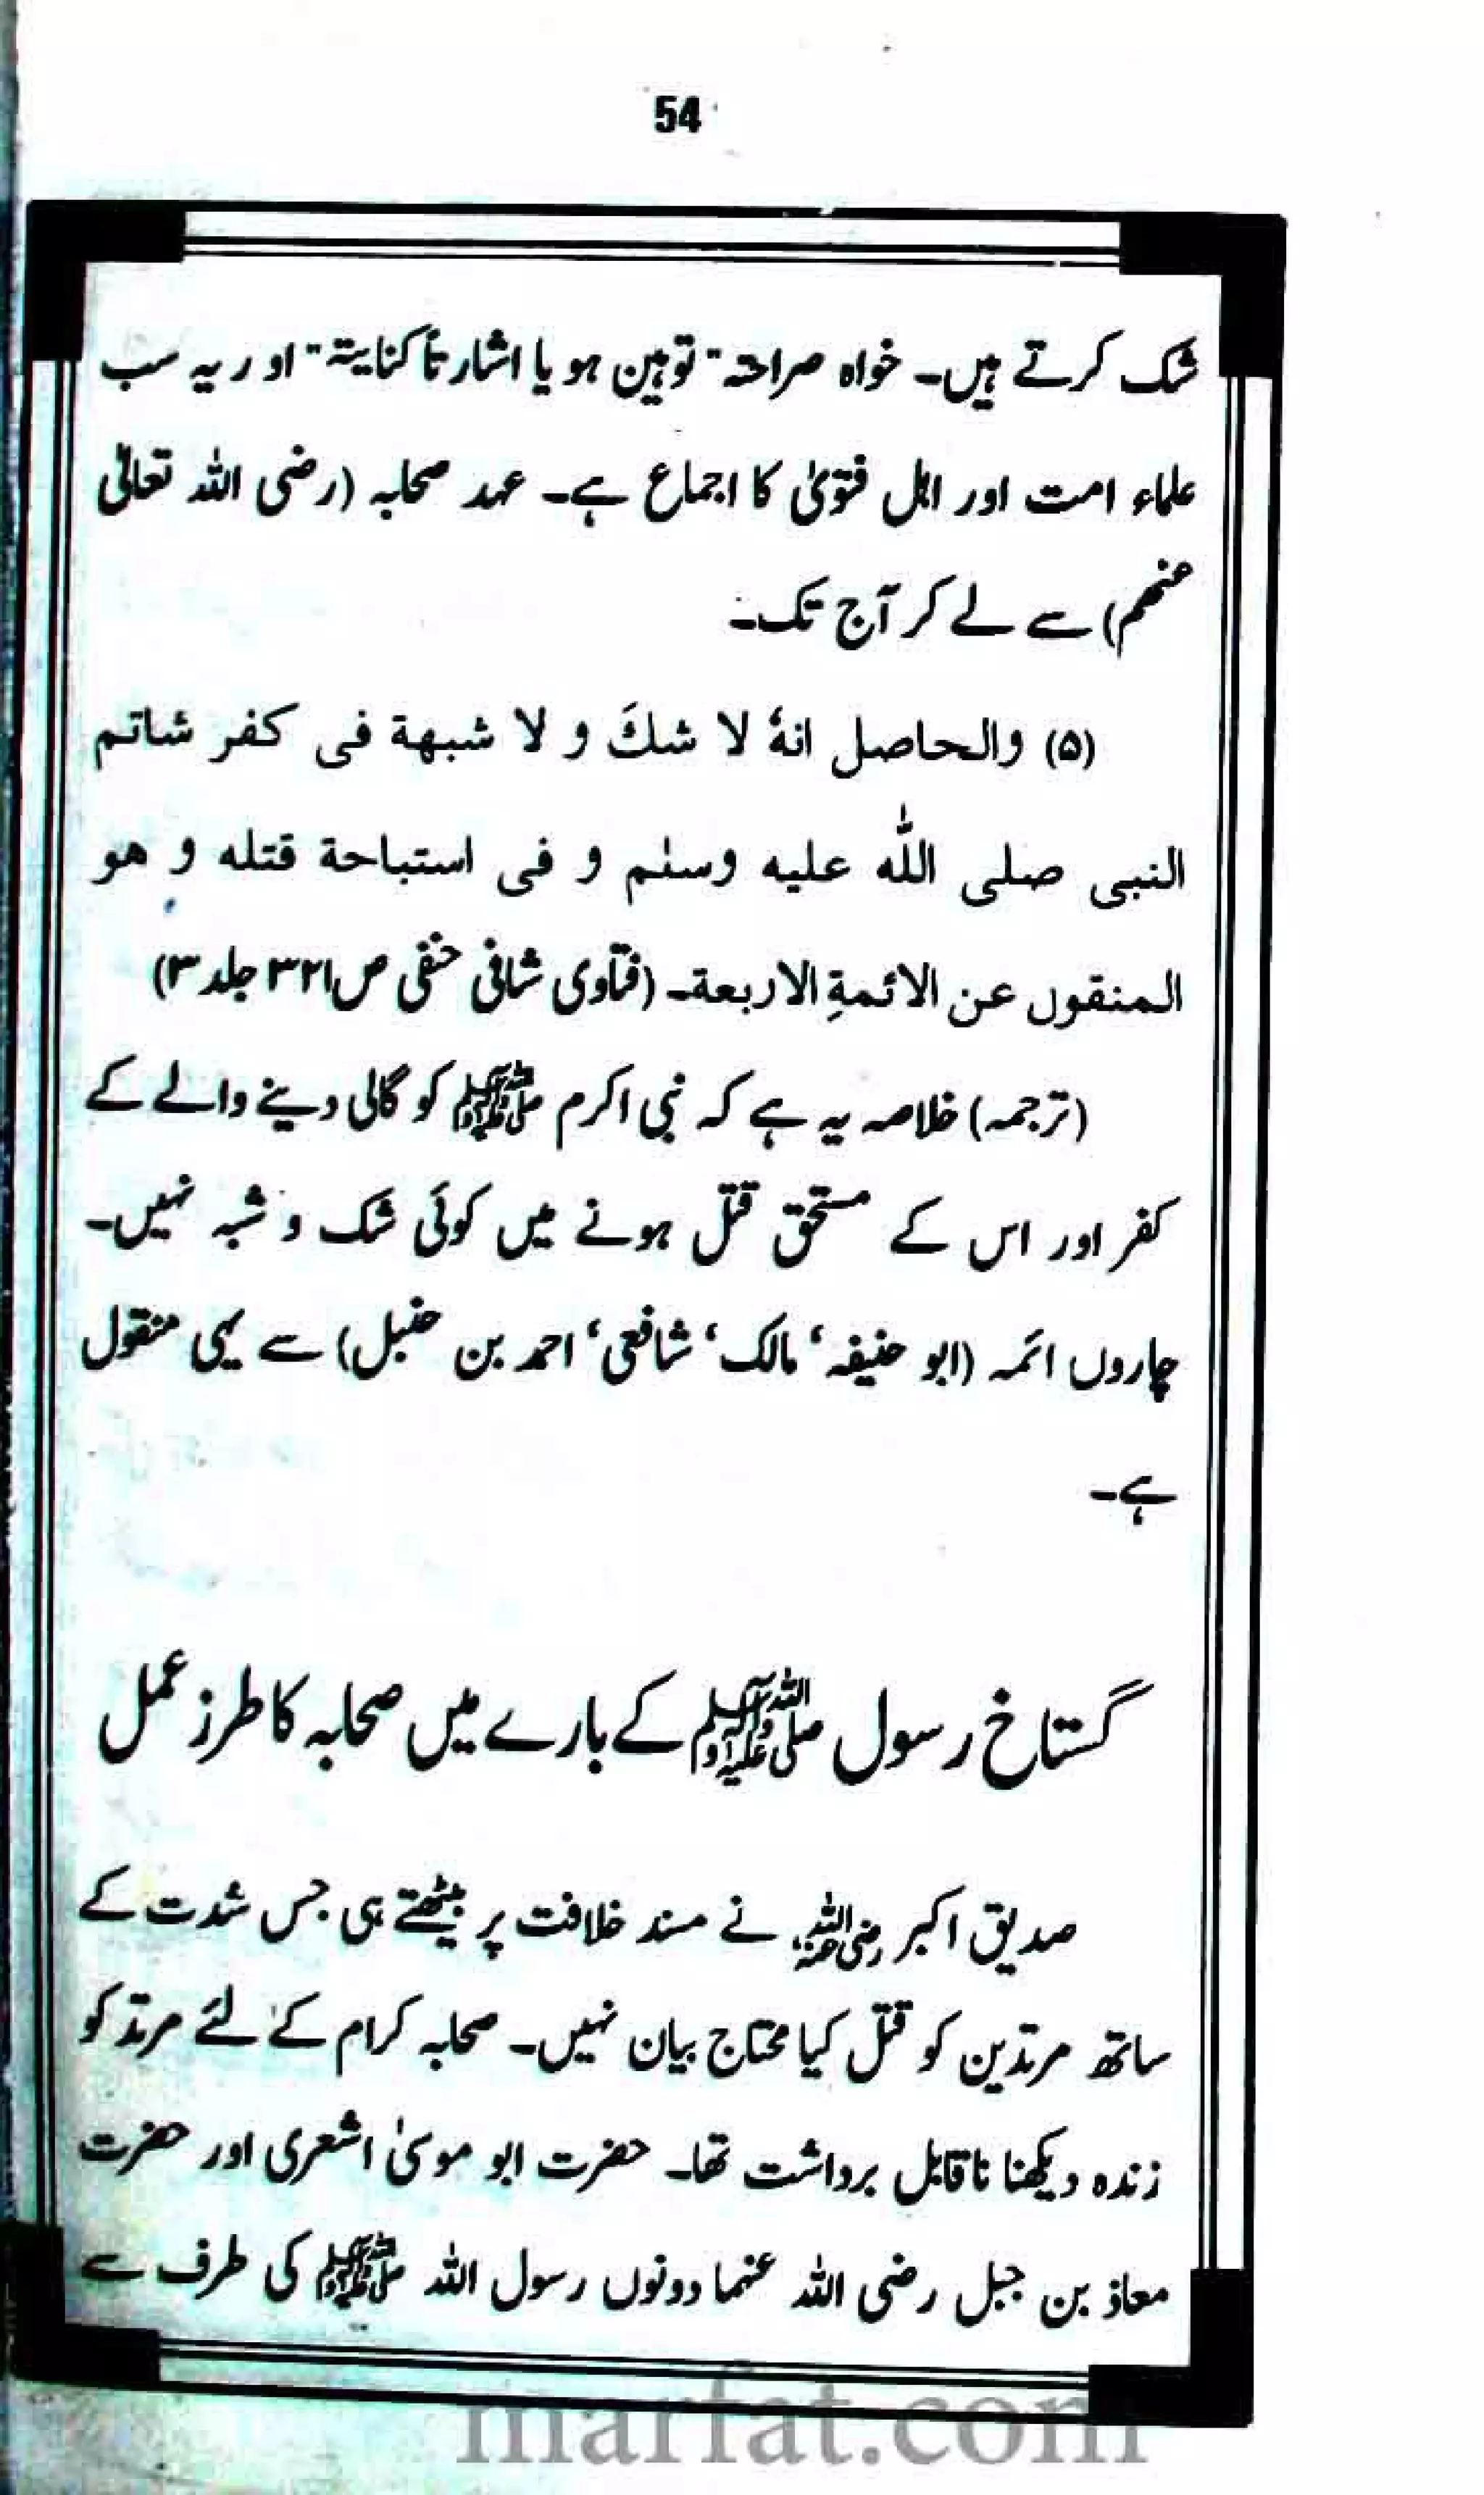 54
شک کرتے ہیں۔ خواہ صراحۃ" توہین ہو یا اشارتاً کنایتہ" اور یہ سب
علماء امت اور اہل فتویٰ کا اجماع ہے۔ عہد صحابہ (رضی اللہ تعالیٰ
عنھم) سے لے کر آج تک۔
(۵) والحاصل انہٗ لا شكَ و لا شبھة فی کفر شاتم
النبی صلی اللّٰہ علیہ وسلم و فی استباحة قتلہ و ھو
المنقول عن الائمةِ الاربعة۔ (فتاوی شافی حنفی ص۳۲۱ جلد۳)
(ترجمہ) خلاصہ یہ ہے کہ نبی اکرم ﷺ کو گالی دینے والے کے
کفر اور اس کے مستحق قتل ہونے میں کوئی شک و شبہ نہیں۔
چاروں ائمہ (ابو حنیفہ' مالک' شافعی' احمد بن حنبل) سے یہی منقول
ہے۔
گستاخ رسول ﷺ کے بارے میں صحابہ کا طرز عمل
صدیق اکبر رضی اللہ عنہ نے مسند خلافت پر بیٹھتے ہی جس شدت کے
ساتھ مرتدین کو قتل کیا محتاج بیان نہیں۔ صحابہ کرام کے لئے مرتد کو
زندہ دیکھنا ناقابل برداشت تھا۔ حضرت ابو موسیٰ اشعری اور حضرت
معاذ بن جبل رضی اللہ عنما دونوں رسول اللہ ﷺ کی طرف سے
marfat.com